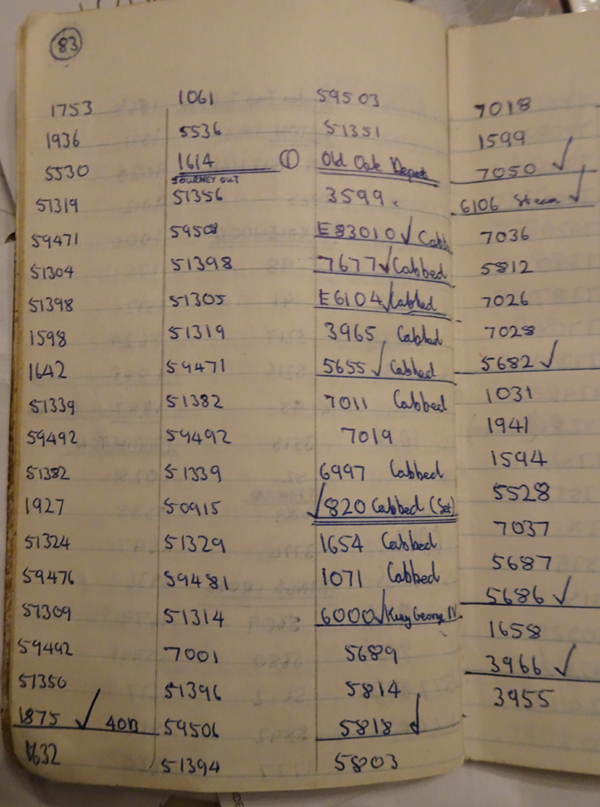 83
1753
1936
5530
51319
59471
51304
51398
1598
1642
51339
59492
51382
1927
51324
59476
51309
59492
51350
1875 ✓ 40B
1632
1061
5536
1614 ①
JOURNEY OUT
51356
59508
51398
51305
51319
59471
51382
59492
51339
50915
51329
59481
51314
7001
51396
59506
51394
59503
51351
Old Oak Depot
3599
E83010 ✓ Cabb
7677 ✓ Cabbed
E6104 ✓ Cabbed
3965 Cabbed
5655 ✓ Cabbed
7011 Cabbed
7019
6997 Cabbed
✓ 820 Cabbed (Set)
1654 Cabbed
1071 Cabbed
6000 ✓ King George IV
5689
5814
5818 ✓
5803
7018
1599
7050 ✓
6106 Steam ✓
7036
5812
7026
7028
5682 ✓
1031
1941
1594
5528
7037
5687
5686 ✓
1658
3966 ✓
3955